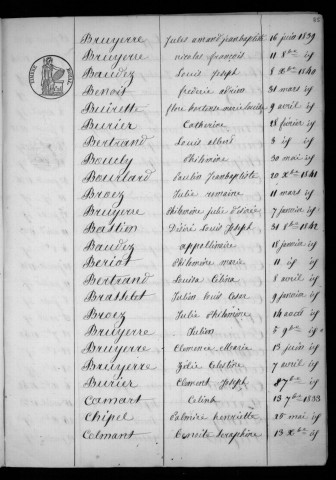 Bruyerre Jules amand jean baptiste 16 juin 1839
Bruyerre nicolas françois 11 8bre id
Baudez Louis Joseph 8 Xbre 1840
Benoit frederic adrien 31 mars id
Buirette flore hortense marie 9 avril id
Burier Catherine 18 février id
Bertrand Louis albert 3 id
Bouely Philomène 30 mai id
Bourlard Paulin Jean baptiste 20 Xbre 1841
Broez Julie romaine 11 mars id
Bruyerre Philomène julie 7 janvier id
Bastien Désiré Louis Joseph 31 8bre 1842
Baudez appollinaire 18 janvier id
Beriot Philomène marie 11 id
Bertrand Louisa Célina 8 avril id
Brasselet Julien Louis 9 janvier id
Broez Julie Philomène 14 août id
Bruyerre Julien 5 9bre id
Bruyerre Clémence Marie 13 juin id
Bruyerre Zélie Célestine 7 avril id
Burier Clément Joseph id
Camart Celina 13 7bre 1833
Chipel Palmire henriette 25 mai id
Colmant Benoite Séraphine 13 Xbre id